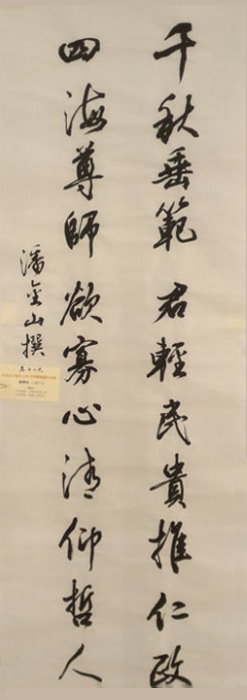 千秋垂範君輕民貴推仁政
四海尊師欲寡心清仰哲人
潘金山撰